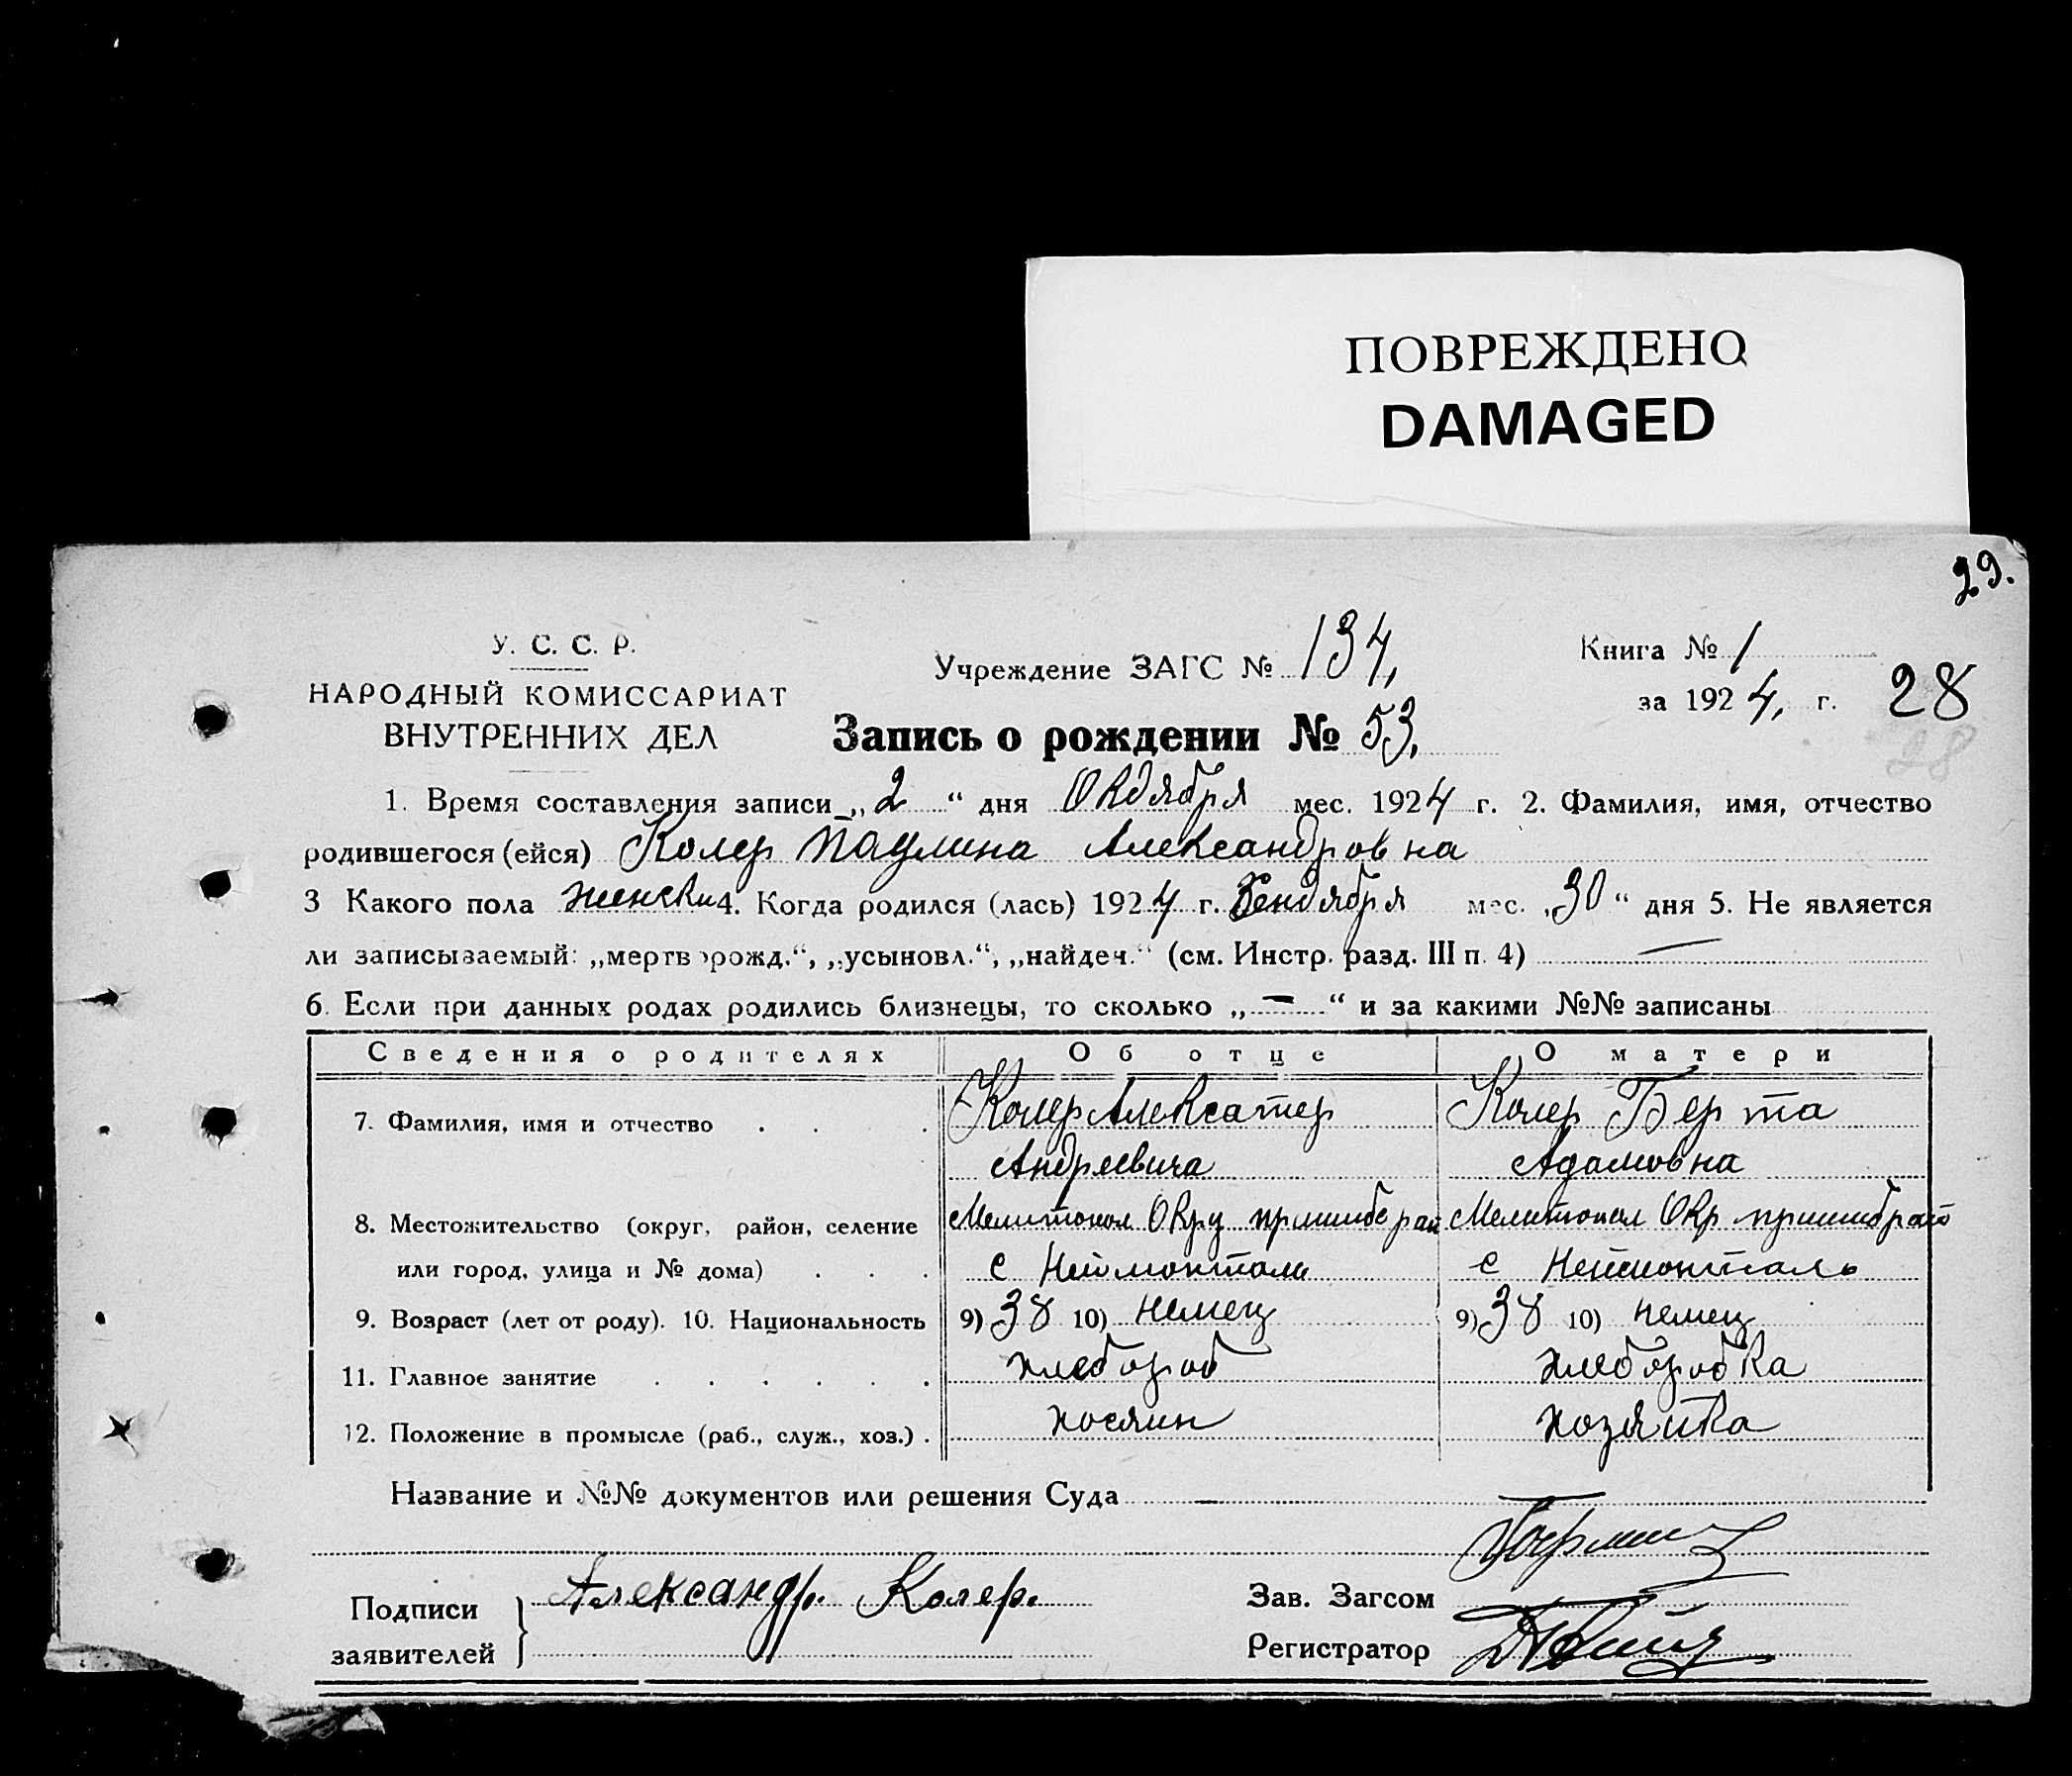 ПОВРЕЖДЕНО
DAMAGED
29.
У. С. С. Р.
НАРОДНЫЙ КОМИССАРИАТ
ВНУТРЕННИХ ДЕЛ
Учреждение ЗАГС № 134,
Книга № 1
за 1924, г. 28
28
Запись о рождении № 53,
1. Время составления записи „2“ дня Октября мес. 1924 г. 2. Фамилия, имя, отчество
родившегося (ейся) Колер Паулина Александровна
3 Какого пола женски 4. Когда родился (лась) 1924 г. Сендября мес. „30“ дня 5. Не является
ли записываемый: „мертворожд.“, „усыновл.“, „найден.“ (см. Инстр. разд. III п. 4) —
6. Если при данных родах родились близнецы, то сколько „—“ и за какими №№ записаны
Сведения о родителях Об отце О матери
7. Фамилия, имя и отчество Колер Алексатер Колер Берта
Андреевича Адамовна
8. Местожительство (округ, район, селение Мелитопол Окру пришибрай Мелитопол Окр пришибрай
или город, улица и № дома) с Неймонтали с Неймонталь
9. Возраст (лет от роду). 10. Национальность 9) 38 10) немец 9) 38 10) немец
11. Главное занятие хлебороб хлеборобка
12. Положение в промысле (раб., служ., хоз.) хосяин хозяйка
Название и №№ документов или решения Суда —
Подписи заявителей Александр. Колер.
Зав. Загсом
Регистратор